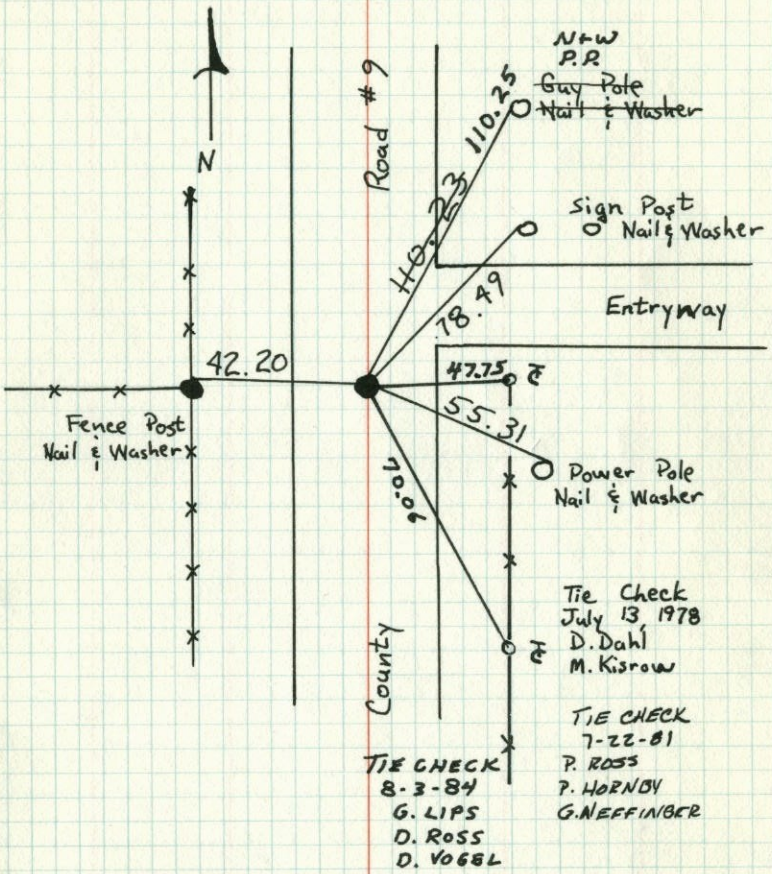 N+W
P.P.
Guy Pole
Nail & Washer
110.25
110.23
Road #9
N
Sign Post
Nail & Washer
78.49
Entryway
42.20
47.75
Fence Post
Nail & Washer
55.31
Power Pole
Nail & Washer
70.06
County
Tie Check
July 13, 1978
D. Dahl
M. Kisrow
TIE CHECK
7-22-81
P. ROSS
P. HORNBY
G. NEFFINGER
TIE CHECK
8-3-84
G. LIPS
D. ROSS
D. VOGEL